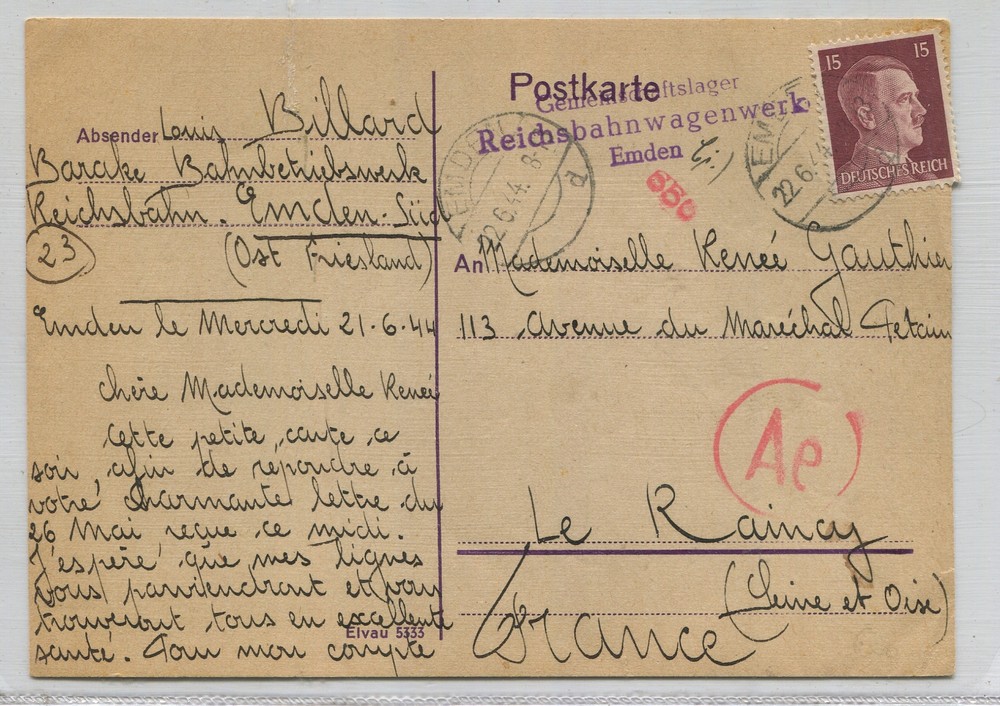 Postkarte
Gemeinschaftslager
Reichsbahnwagenwerk
Emden
EMDEN
22.6.44. 8-
d
EMDEN
22.6.44
15 15
DEUTSCHES REICH
550
Absender Louis Billard
Barake Bahnbetriebswerk
Reichsbahn. Emden-Süd
23 (Ost Friesland)
Emden le Mercredi 21-6-44
chère Mademoiselle Renée
Cette petite carte ce
soir, afin de répondre à
votre charmante lettre du
26 Mai reçue ce midi.
J'espère que mes lignes
vous parviendront et vous
trouveront tous en excellente
santé. Pour mon compte
Elvau 5333
An Mademoiselle Renée Gauthier
113 Avenue du Maréchal Petain
Ae
Le Raincy
(Seine et Oise)
France